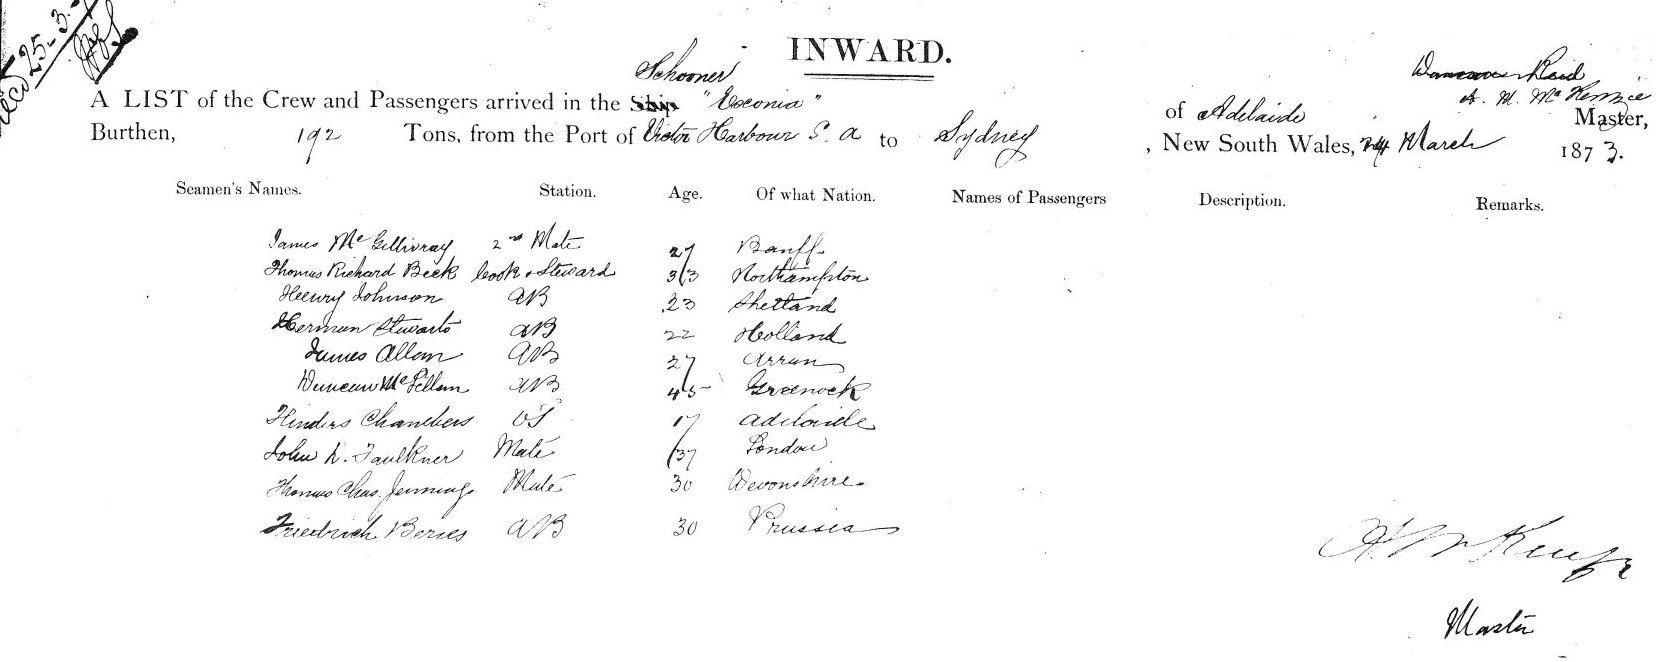 Recd 25-3-
INWARD.
Schooner
A LIST of the Crew and Passengers arrived in the Ship "Esconia" of Adelaide A. M. McKenzie Master,
Burthen, 192 Tons, from the Port of Victor Harbour S. A to Sydney, New South Wales, 24 March 1873.
Seamen's Names. Station. Age. Of what Nation. Names of Passengers Description. Remarks.
James McGillivray 2nd Mate 27 Banff
Thomas Richard Beek Cook & Steward 33 Northampton
Henry Johnson AB 23 Shetland
Herman Stewarts AB 22 Holland
James Allan AB 27 Arran
Duncan McLellan AB 45 Greenock
Flinders Chambers OS 17 Adelaide
John L. Faulkner Mate 37 London
Thomas Chas. Jennings Mate 30 Devonshire
Friedrich Beries AB 30 Prussia
A McKenzie
Master